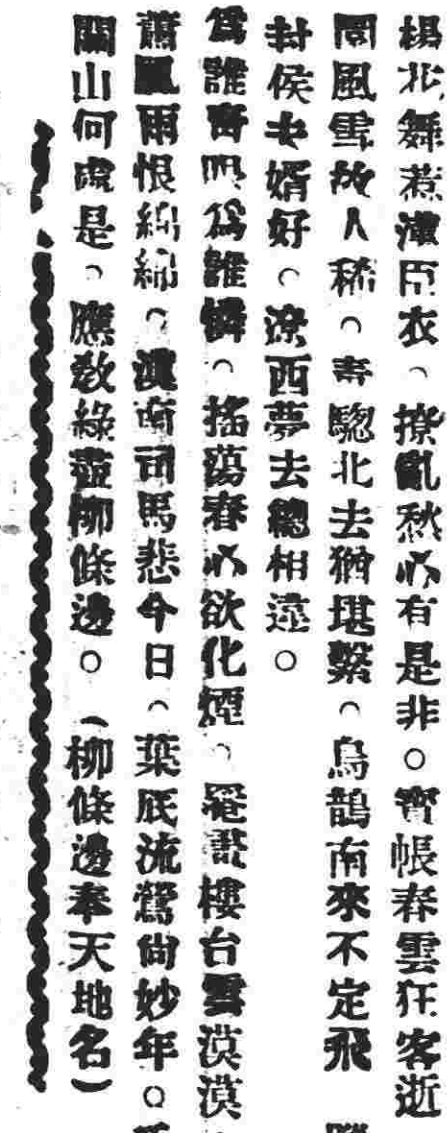 楊北舞惹渡臣衣、撩亂愁心有是非。寶帳春雲狂客逝
間風雪故人稀、青驄北去猶堪繫、烏鵲南來不定飛
封侯夫婿好、遼西夢去總相違。
為誰言明為誰憐、搖蕩春心欲化煙、罨畫樓台雲漠漠
蕭風雨恨綿綿、滇南司馬悲今日、葉底流鶯尚妙年。
關山何處是、應教綠盡柳條邊。（柳條邊奉天地名）